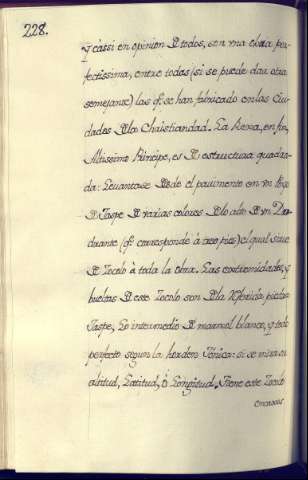 228.
y cassi en opinion de todos, son vna obra per
fectissima, entre todas (si se puede dar otra
semejante) las q.e se han fabricado en las Ciu
dades de la Christiandad. La Rexa, en fin,
Altissimo Principe, es de estructura quadra
da: Levantase desde el pavimento en vn
de Jaspe de varias colores de lo alto de vn Do
drante (q.e corresponde à tres pies) el qual sirve
de Zocolo à toda la obra. Las extremidades, y
bueltas de este Zocolo son de la referida piedra
Jaspe, Lo intermedio de marmol blanco, y todo
perfecto segun la horden Jonica: si se mira su
altitud, Latitud, ò Longitud. Tiene este Zocolo